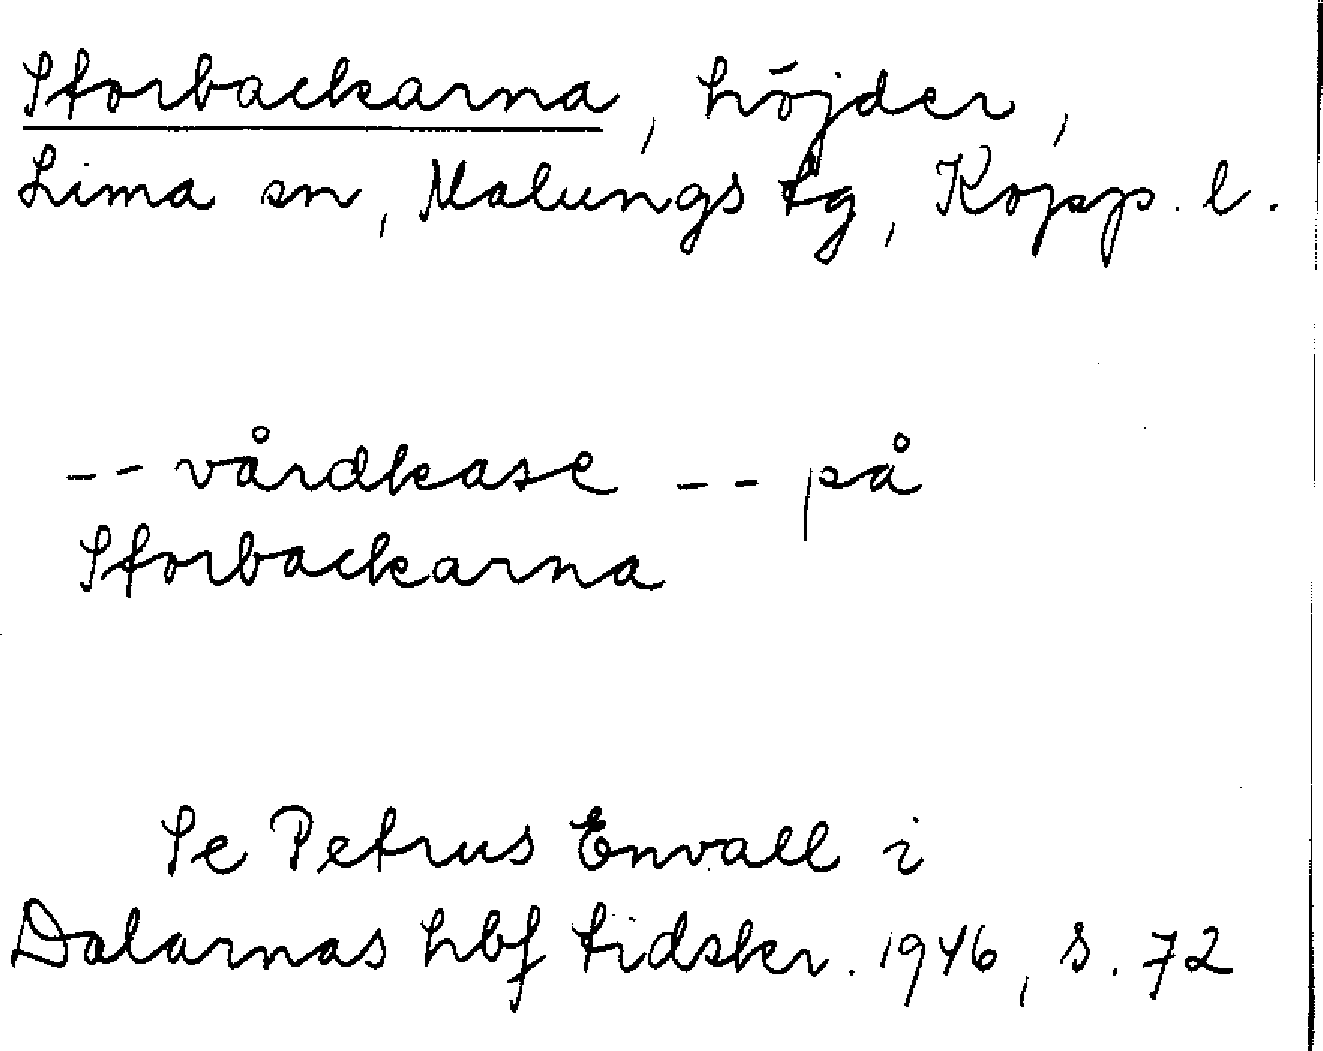 Storbackarna, höjder,
Lima sn, Malungs tg, Kopp. l.
-- vårdkase -- på
Storbackarna
Se Petrus Envall i
Dalarnas hbf tidskr. 1946, s. 72